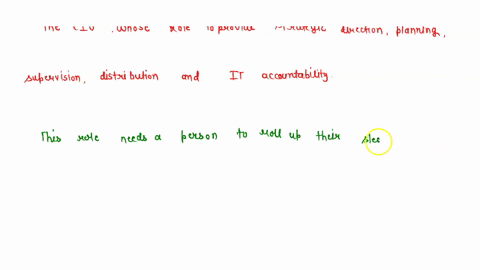 The CIO , whose role to provide strategic direction, planning,
supervision, distribution and IT accountability.
This role needs a person to roll up their slee